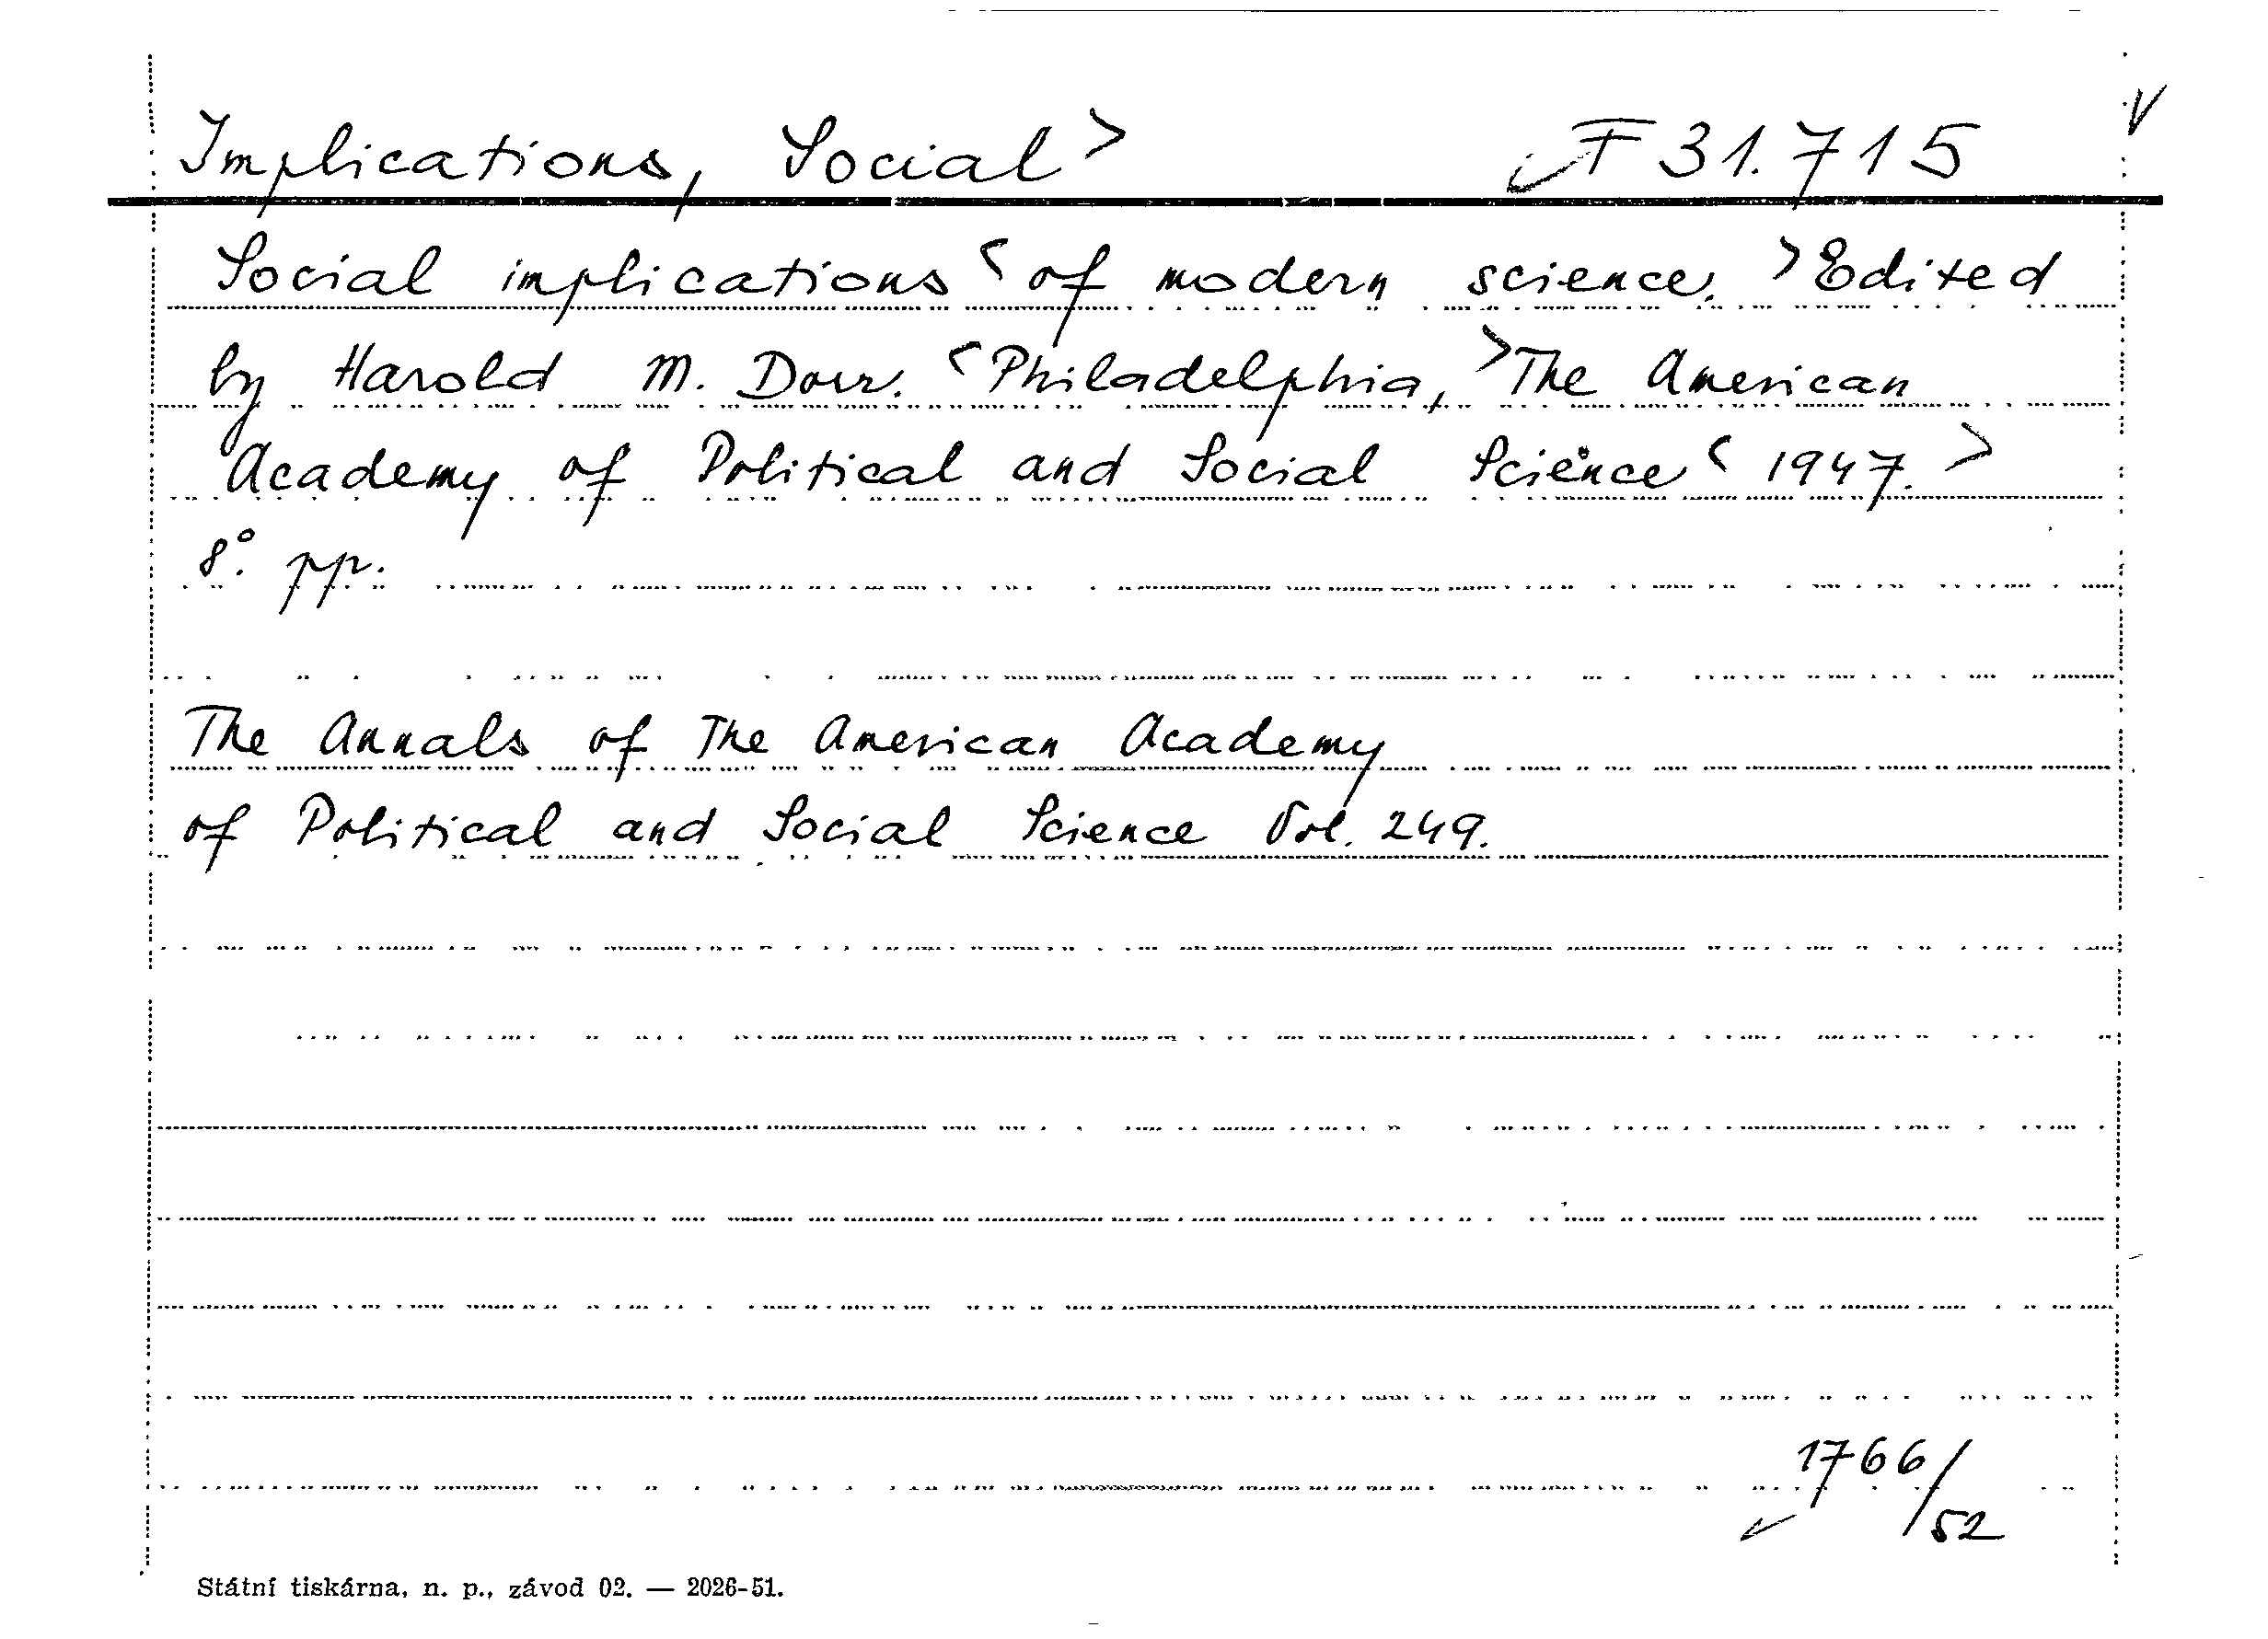 Implications, Social> F 31.715 V
Social implications < of modern science. > Edited
by Harold M. Dorr. < Philadelphia, > The American
Academy of Political and Social Science < 1947. >
8°. pp.
The Annals of The American Academy
of Political and Social Science Vol. 249.
1766/52
Státní tiskárna, n. p., závod 02. — 2026-51.